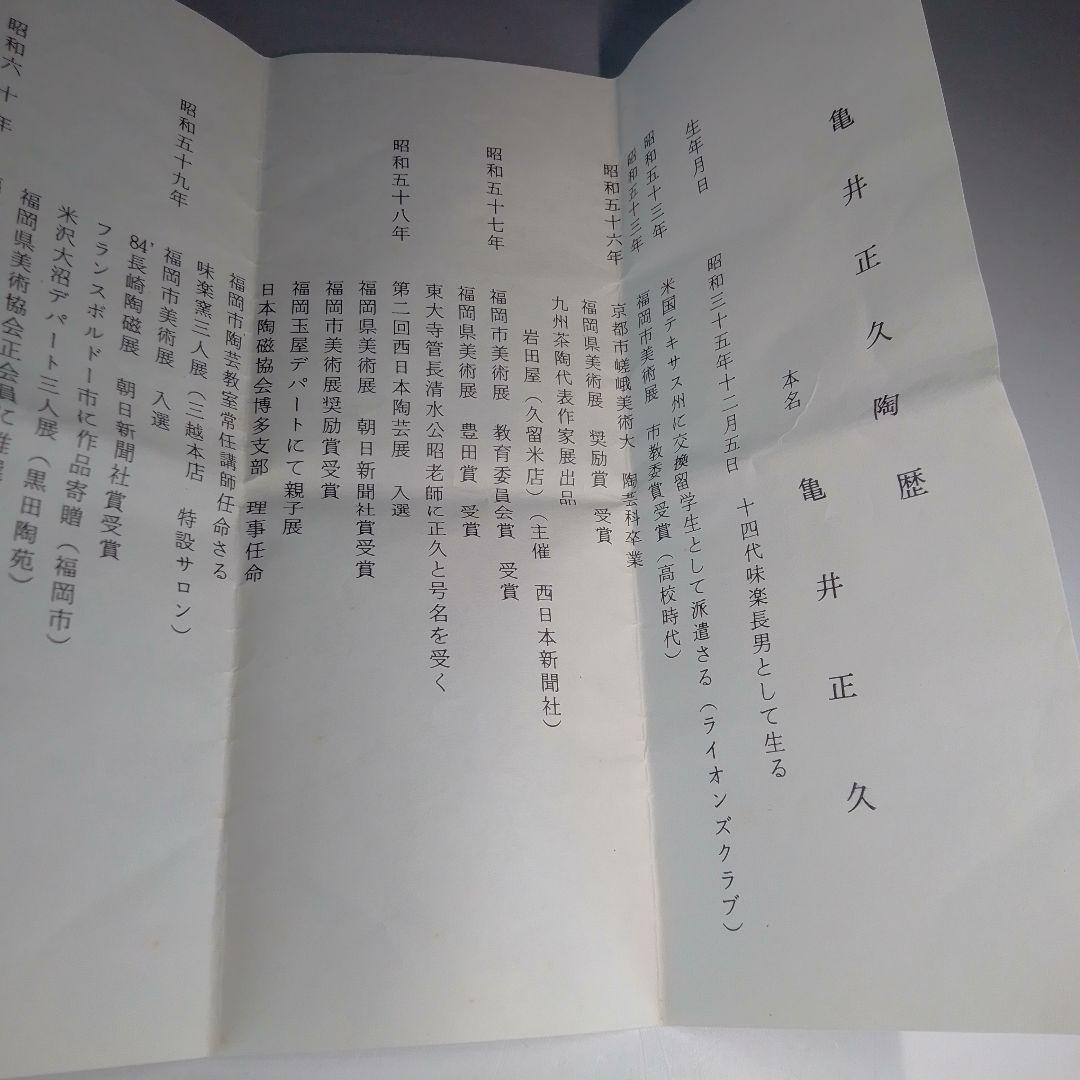 亀井正久陶歴
本名　亀井正久
生年月日　昭和三十五年十二月五日　十四代味楽長男として生る
昭和五十三年　米国テキサス州に交換留学生として派遣さる（ライオンズクラブ）
昭和五十三年　福岡市美術展　市教委賞受賞（高校時代）
昭和五十六年　京都市嵯峨美術大　陶芸科卒業
福岡県美術展　奨励賞　受賞
九州茶陶代表作家展出品
岩田屋（久留米店）（主催　西日本新聞社）
昭和五十七年　福岡市美術展　教育委員会賞　受賞
福岡県美術展　豊田賞　受賞
東大寺管長清水公昭老師に正久と号名を受く
昭和五十八年　第二回西日本陶芸展　入選
福岡県美術展　朝日新聞社賞受賞
福岡市美術展奨励賞受賞
福岡玉屋デパートにて親子展
日本陶磁協会博多支部　理事任命
福岡市陶芸教室常任講師任命さる
昭和五十九年　味楽窯三人展（三越本店　特設サロン）
福岡市美術展　入選
84'長崎陶磁展　朝日新聞社賞受賞
フランスボルドー市に作品寄贈（福岡市）
米沢大沼デパート三人展（黒田陶苑）
福岡県美術協会正会員に推選
昭和六十年